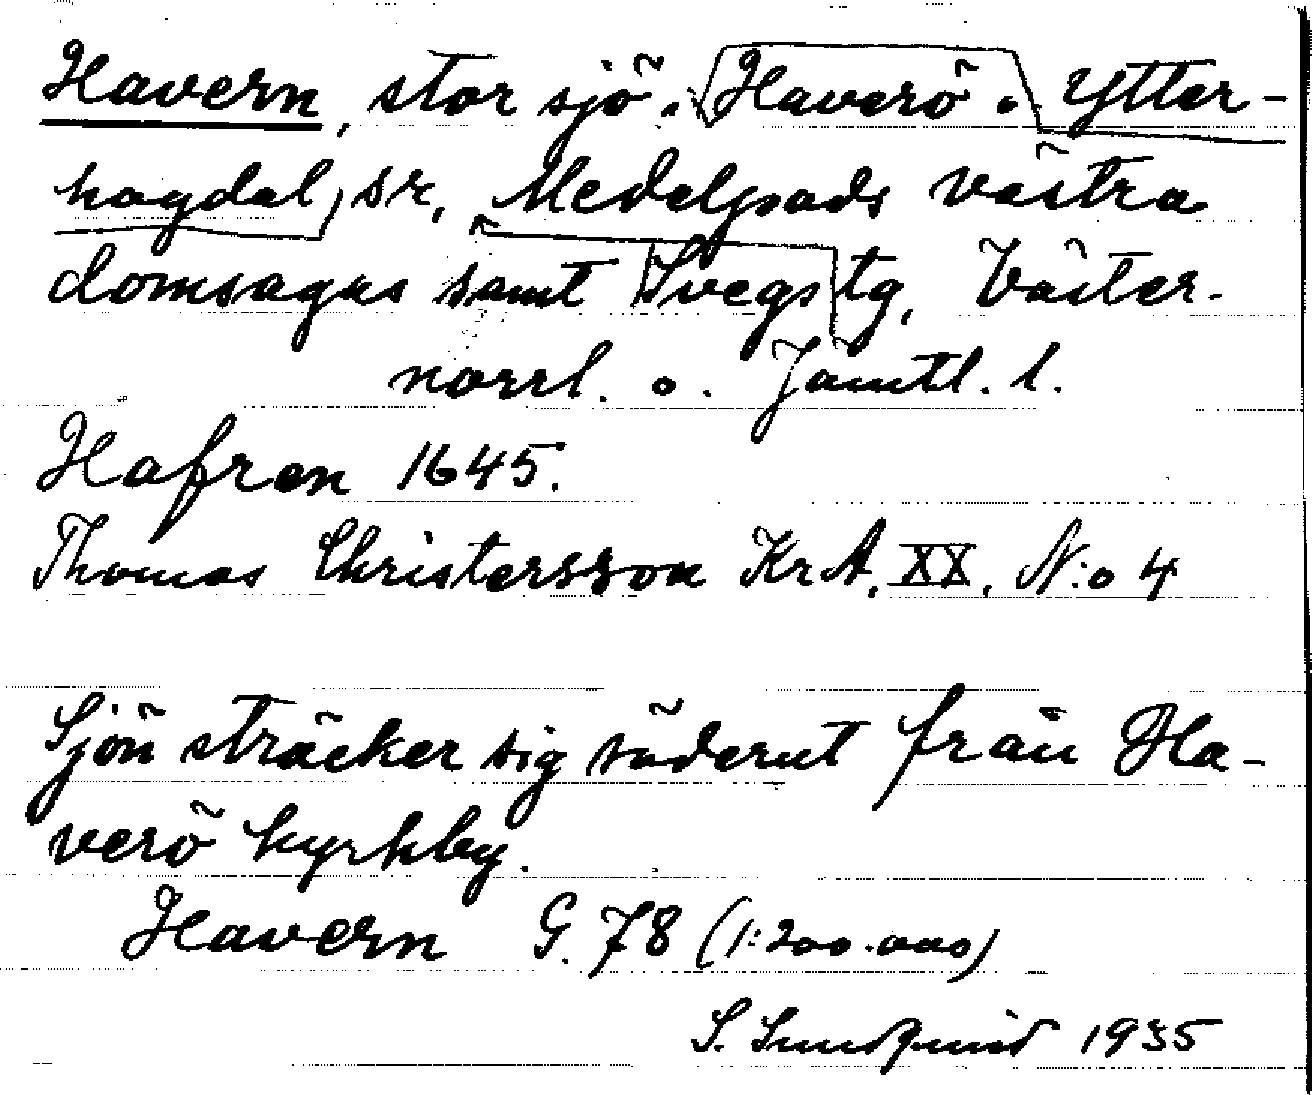 Havern, stor sjö. Haverö o. Ytter-
hogdal, sr, Medelpads västra
domsagas samt Svegs tg, Väster-
norrl. o. Jämtl. l.
Hafren 1645.
Thomas Christersson KrA. XX. N:o 4
Sjön sträcker sig söderut från Ha-
verö kyrkby.
Havern G. 78 (1:200.000)
S. Sundquist 1935